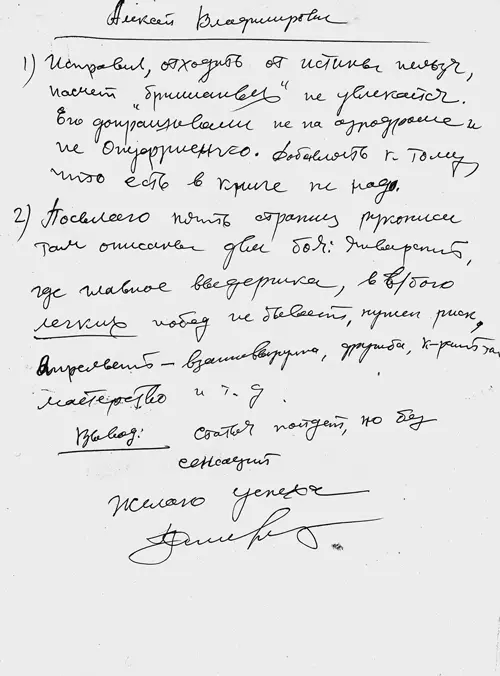 Алексей Владимирович
1) Исправил, отходить от истины нельзя,
насчет "бриллианты" не увлекайся.
Его допрашивали не на аэродроме и
не Опарренько. Добавлять к тому,
что есть в книге не надо.
2) Посылаю пять страниц рукописи
там описаны два боя: январский,
где главное выдержка, в в/бою
легких побед не бывает, нужен риск,
апрельский – взаимовыручка, дружба,
мастерство и т. д
Вывод: статья пойдет, но без
сенсаций
Желаю успеха